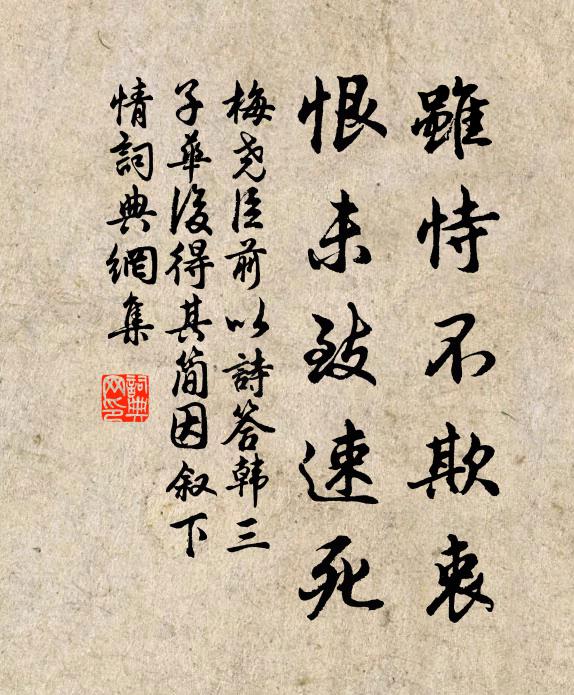 雖恃不欺衷
恨未致速死
梅尧臣前以詩答韩三
子華後得其简因叙下
情詞典網集
詞典网印